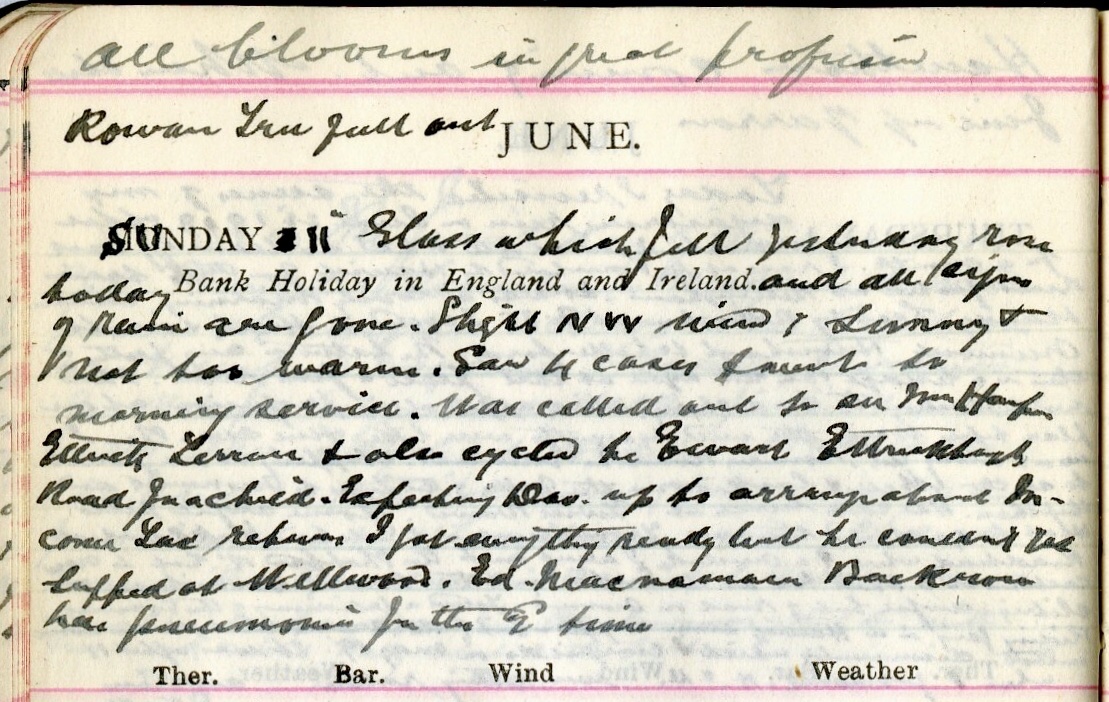 all blooms in great profusion
Rowan Tree full out JUNE.
SUNDAY 11 Glass which fell yesterday rose
Bank Holiday in England and Ireland.
today and all signs
of Rain are gone. Slight NW wind & Sunny &
not too warm. Saw 4 cases & went to
morning service. Was called out to see Mrs
Ettrick Terrace & also cycled to Ewart Ettrickhaugh
Road for a child. Expecting Dav. up to arrange about In-
come Tax return I got everything ready but he couldn't
Supped at Wellwood. Ed. Macnamara Backrow
has pneumonia for the time
Ther. Bar. Wind Weather